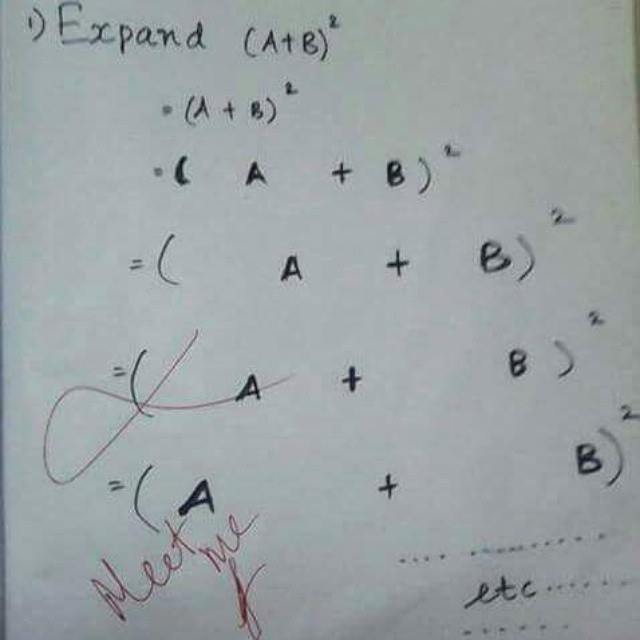 1) Expand (A+B)²
= (A + B)²
= ( A + B)²
= ( A + B)²
= ( A + B)²
= ( A + B)²
Meet me
..............
etc......
......